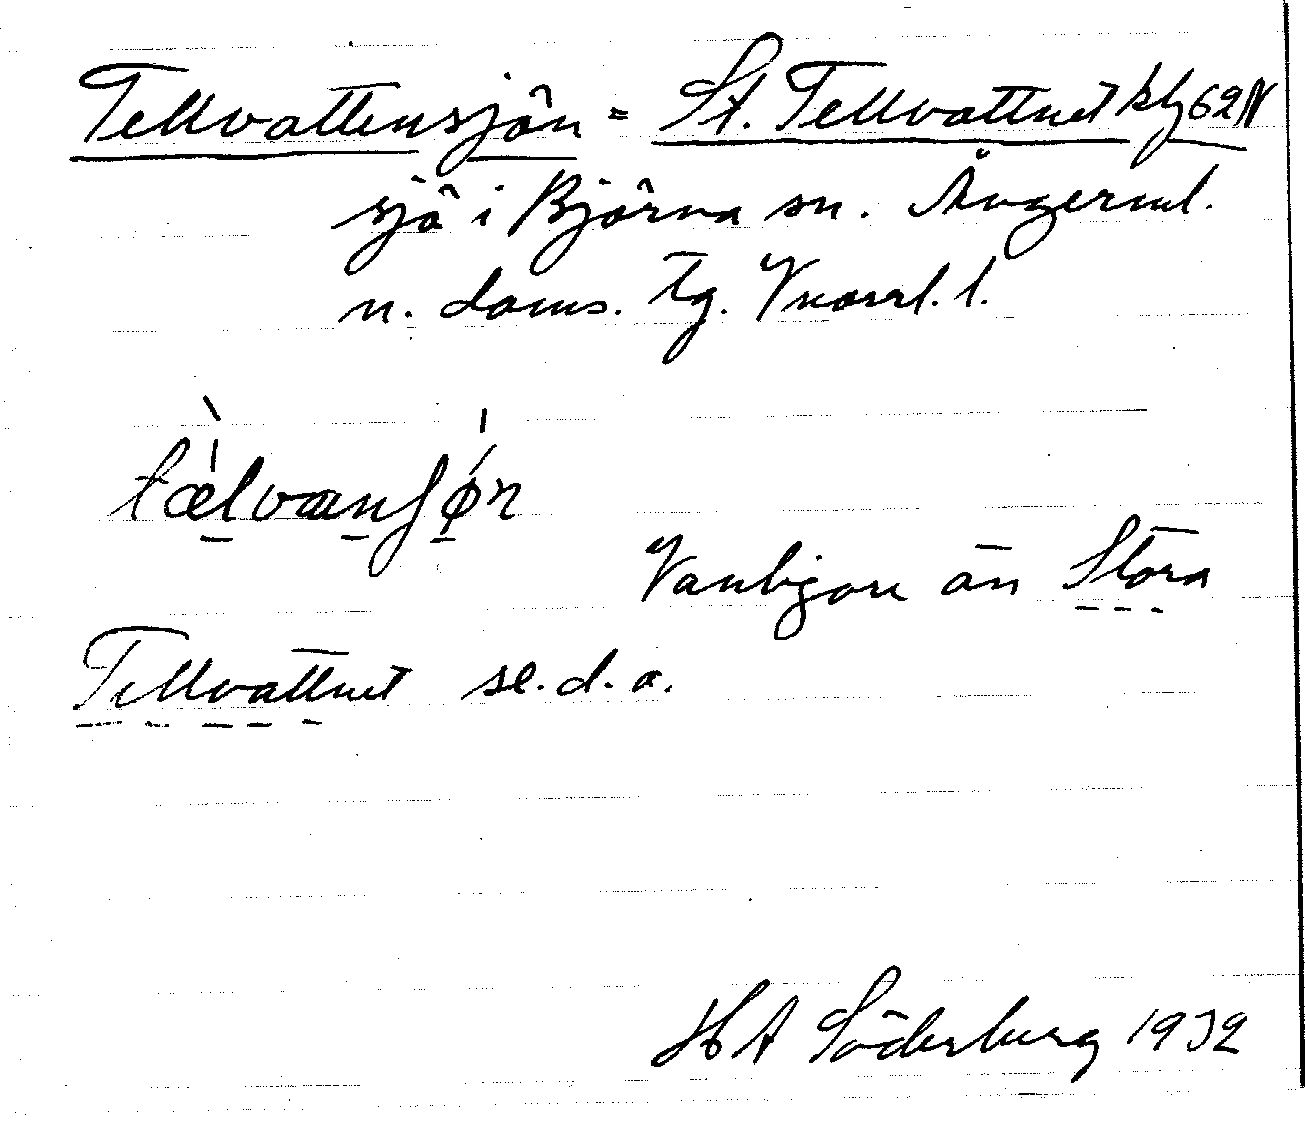 Tellvattensjön = St. Tellvattnet kbl 62 N
sjö i Björna sn. Ångerml.
n. doms. tg. Vnorrl. l.
tæ̀lvænʃǿn
Vanligare än Stora
Tellvattnet se. d. o.
H A Söderberg 1932